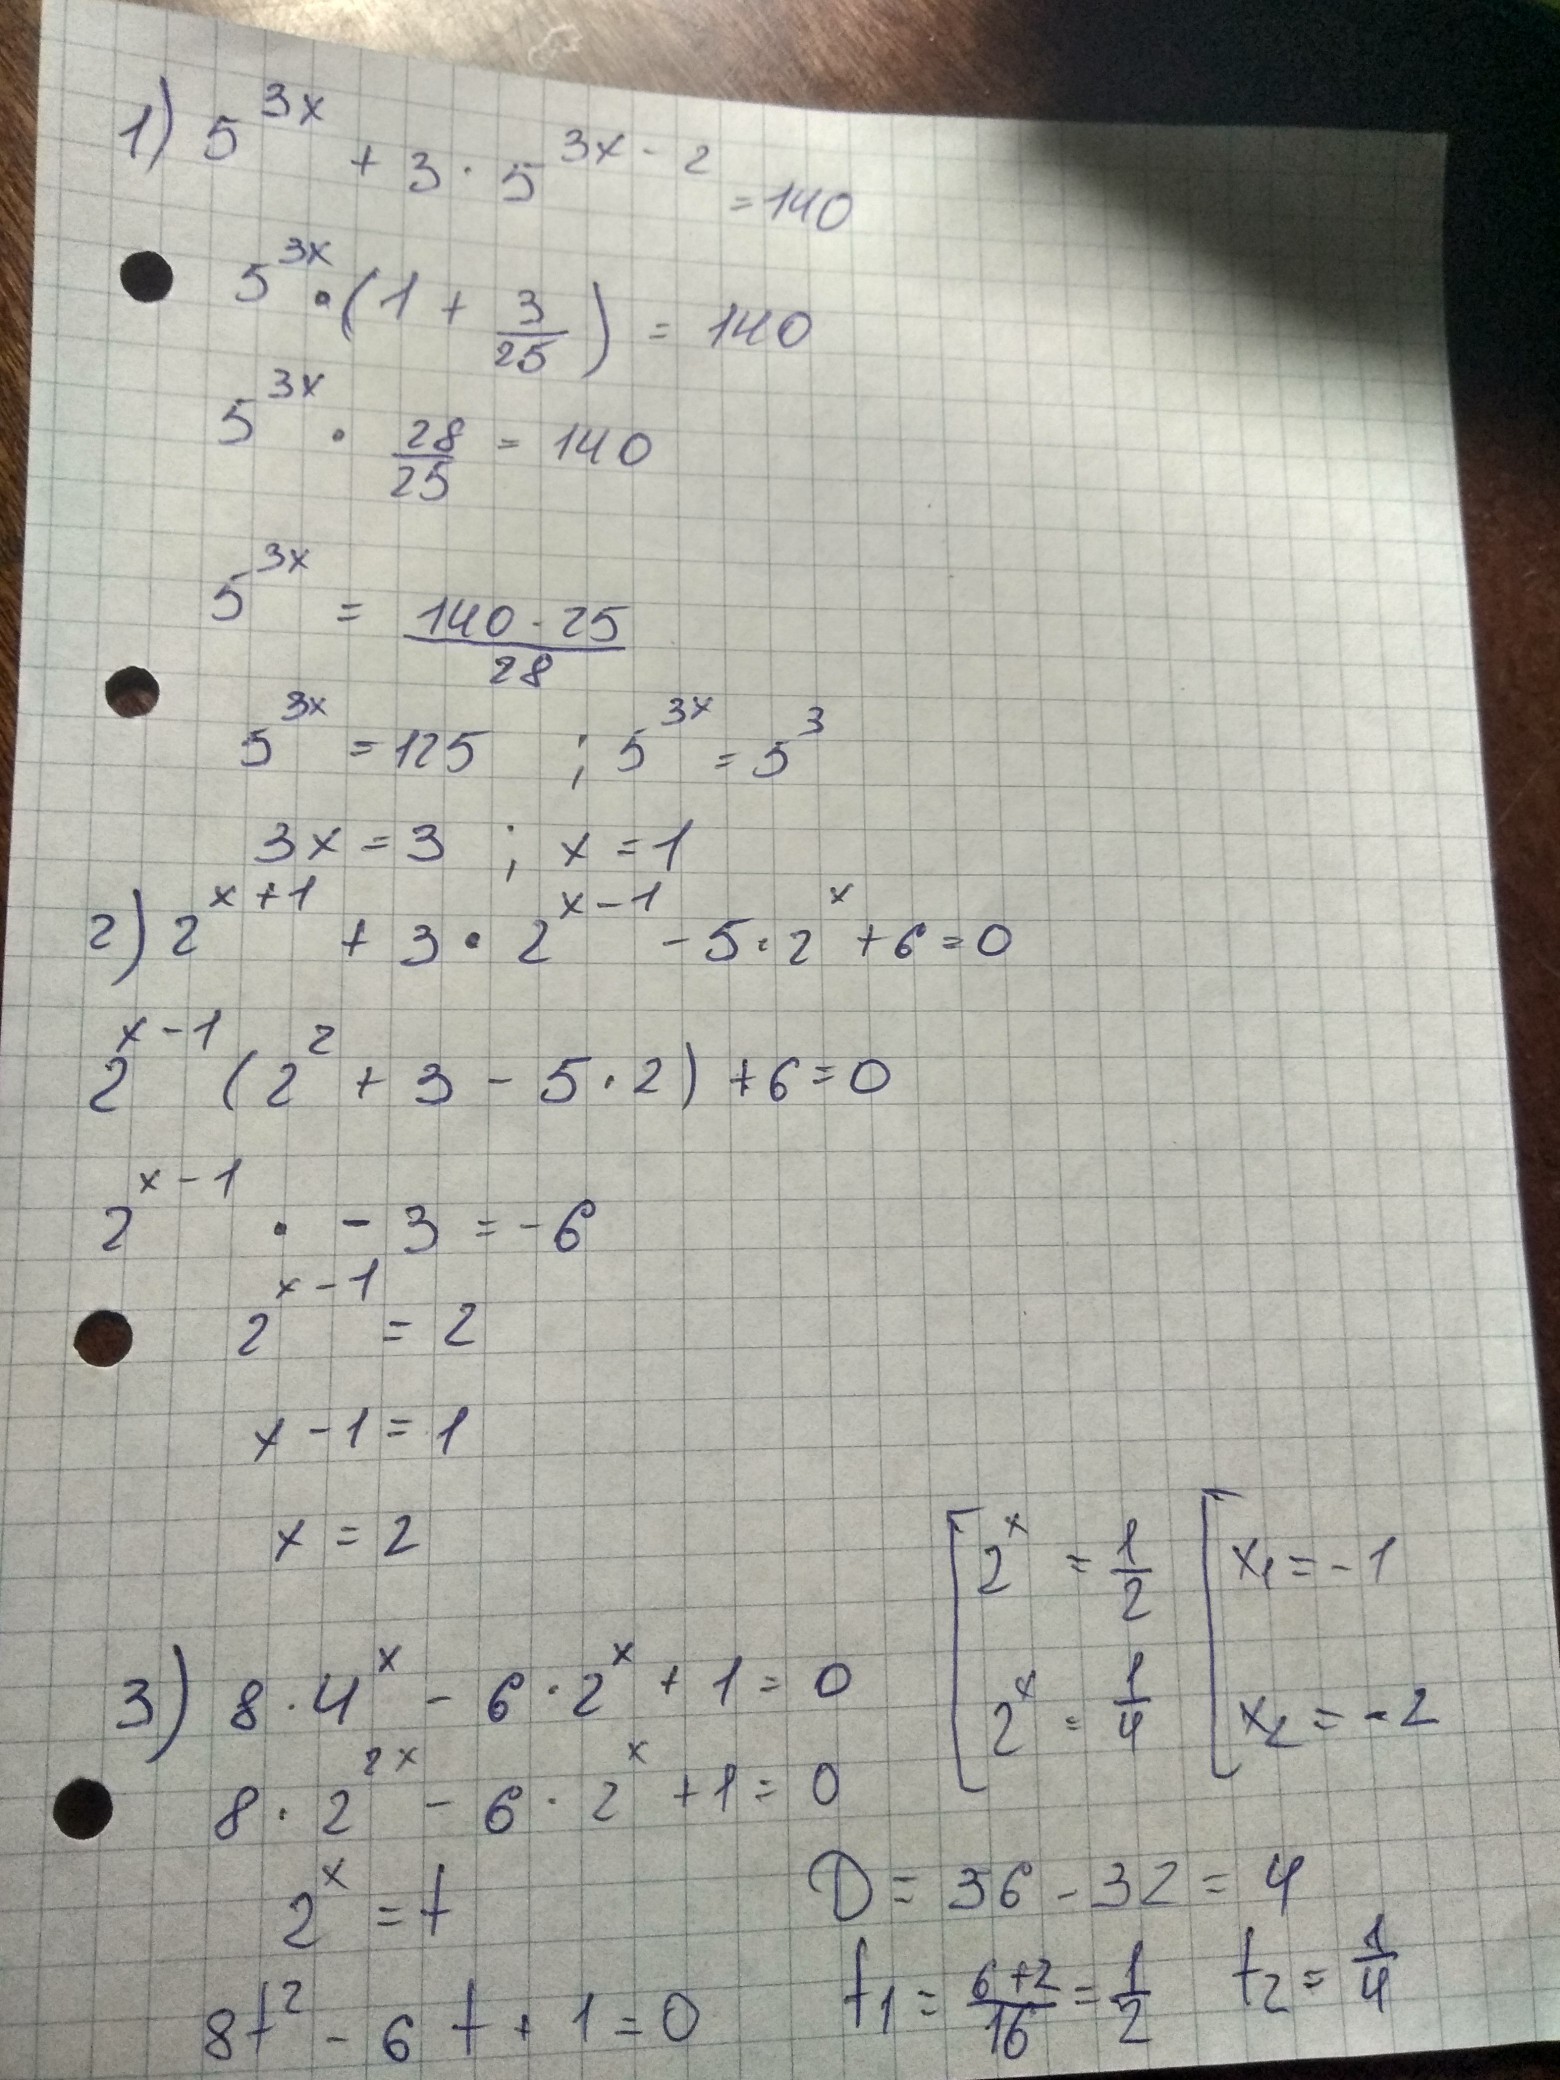 1) 5^{3x} + 3 · 5^{3x - 2} = 140
5^{3x} · (1 + 3/25) = 140
5^{3x} · 28/25 = 140
5^{3x} = (140 · 25)/28
5^{3x} = 125 ; 5^{3x} = 5^3
3x = 3 ; x = 1
2) 2^{x+1} + 3 · 2^{x-1} - 5 · 2^x + 6 = 0
2^{x-1} (2^2 + 3 - 5 · 2) + 6 = 0
2^{x-1} · - 3 = -6
2^{x-1} = 2
x - 1 = 1
x = 2
3) 8 · 4^x - 6 · 2^x + 1 = 0
8 · 2^{2x} - 6 · 2^x + 1 = 0
2^x = t
8t^2 - 6t + 1 = 0
D = 36 - 32 = 4
t1 = (6+2)/16 = 1/2 t2 = 1/4
[ 2^x = 1/2 [ x1 = -1
2^x = 1/4 x2 = -2